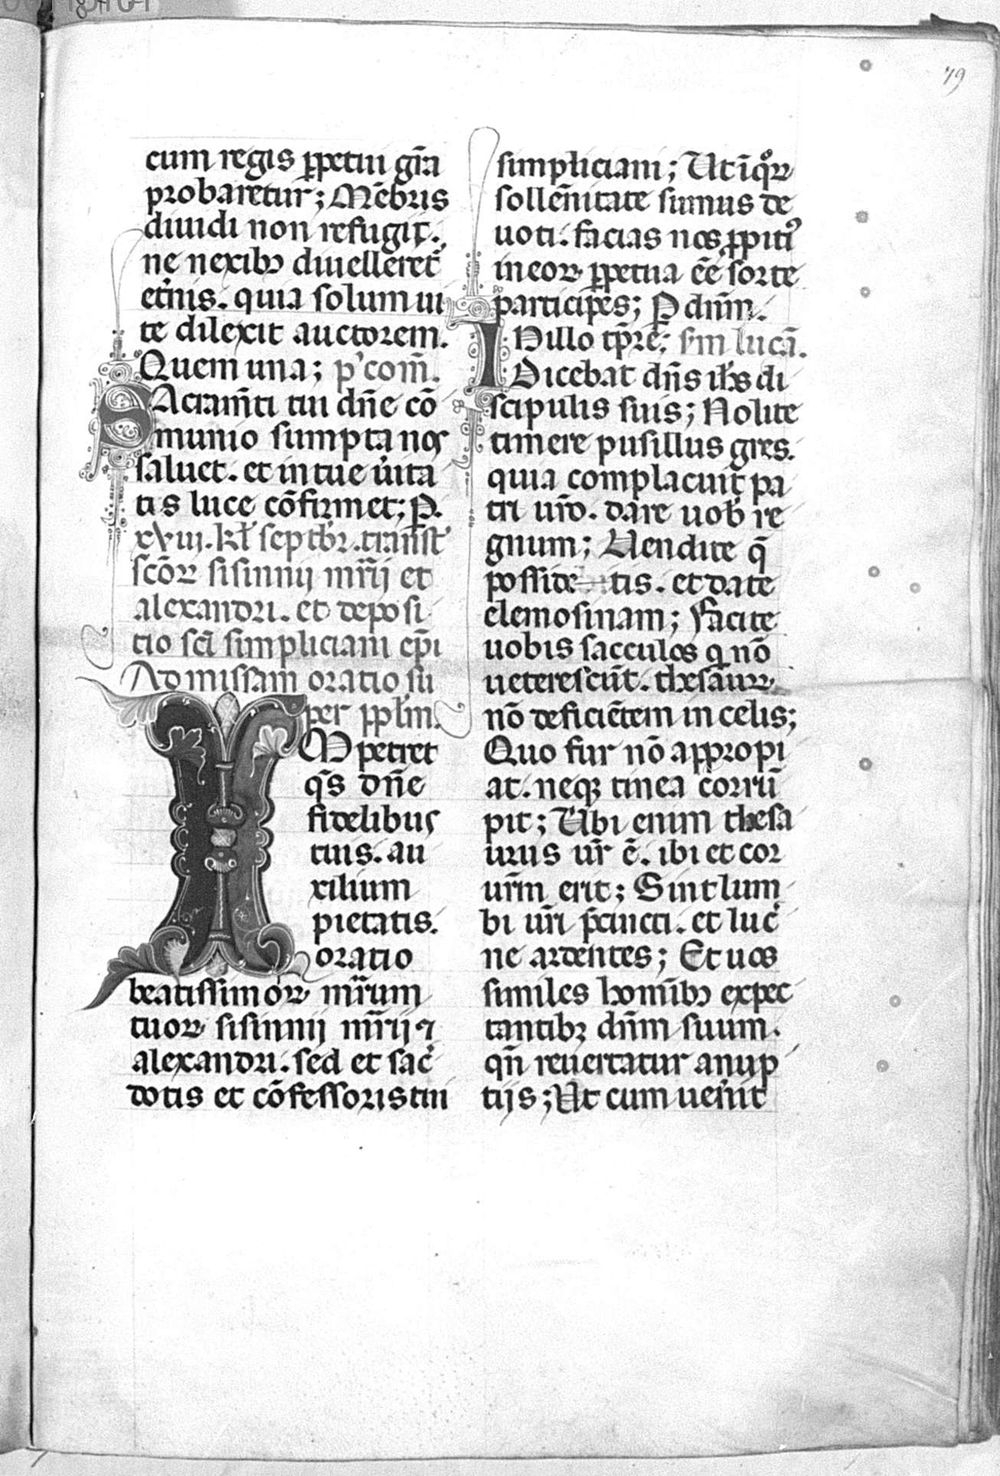 79
cum regis ꝑpetui gr̄a
probaretur; Mēbris
diuidi non refugit.
ne nexibꝫ diuelleret᷑
et̄nis. quia solum ui
te dilexit auctorem.
Quem una; p' com̄.
SAcram̄ti tui dn̄e cō
munio sumpta nos
saluet. et in tue ūita
tis luce cōfirmet; P.
xviii. kł septb̄r. trāslt̄
scōꝝ sisinnij mr̄ij et
alexandri. et deposi
tio scī simpliciani ep̄i
Ad missam oratio su
per pplm̄.
IMpetret
qs̄ dn̄e
fidelibus
tuis. au
xilium
pietatis.
oratio
beatissimoꝝ mr̄um
tuoꝝ sisinnij mr̄ij ⁊
alexandri. sed et sac̄
dotis et cōfessoris tui
simpliciani; Ut ī qͦꝝ
sollēnitate sumus de
uoti. facias nos ꝓpitiꝰ
in eoꝝ ꝑpetua ēe sorte
participes; P dn̄m.
INillo tp̄re; s̄m lucā.
Dicebat dn̄s ih̄s di
scipulis suis; Nolite
timere pusillus grex.
quia complacuit pa
tri ur̄o. dare uob̄ re
gnum; Uendite q̄
possidetis. et date
elemosinam; Facite
uobis sacculos q nō
ueterescūt. thesauꝝ
nō deficiētem in celis;
Quo fur nō appropi
at. neqꝫ tinea corrū
pit; Ubi enim thesa
urus ur̄ ē. ibi et cor
ur̄m erit; Sint lum
bi ur̄i p̄cincti. et luc̄
ne ardentes; Et uos
similes hom̄ibꝫ expec
tantibꝫ dn̄m suum.
qn̄ reuertatur a nup
tijs; Ut cum uen̄it